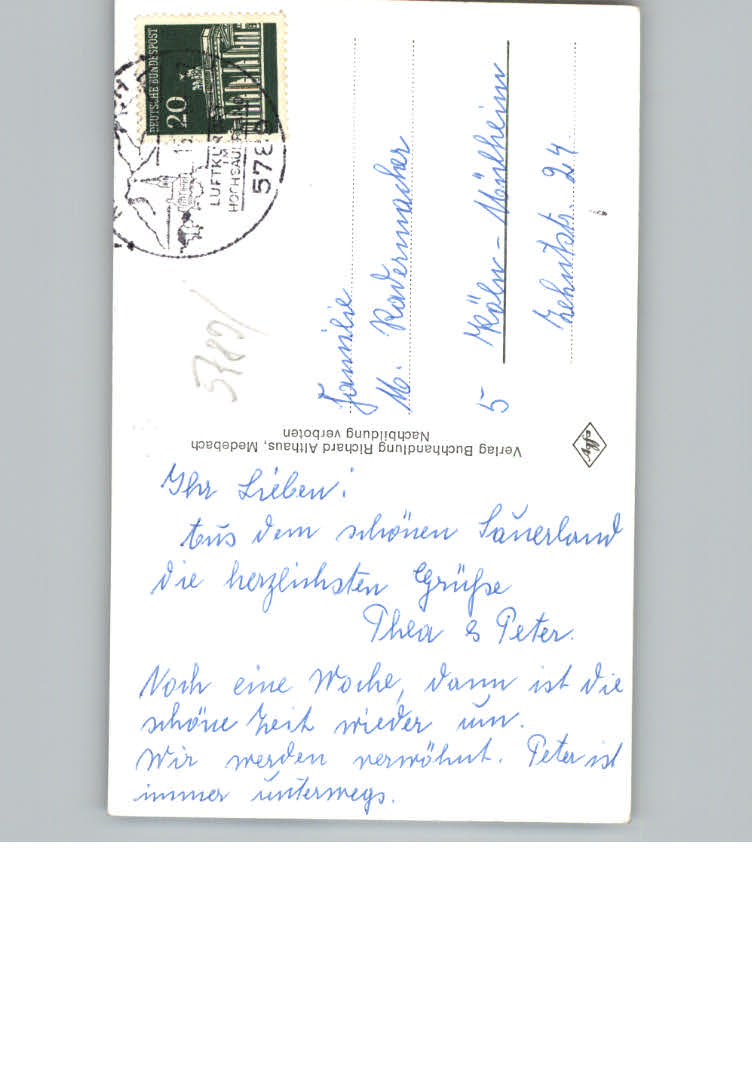 Ihr Lieben!
Aus dem schönen Sauerland
die herzlichsten Grüße
Thea & Peter.
Noch eine Woche, dann ist die
schöne Zeit wieder um.
Wir werden verwöhnt. Peter ist
immer unterwegs.
Verlag Buchhandlung Richard Althaus, Medebach
Nachbildung verboten
Familie
M. Radermacher
5 Köln-Mülheim
Zehntstr. 24
DEUTSCHE BUNDESPOST
20
LUFTKURORT
IM
HOCHSAUERLAND
5789
5789